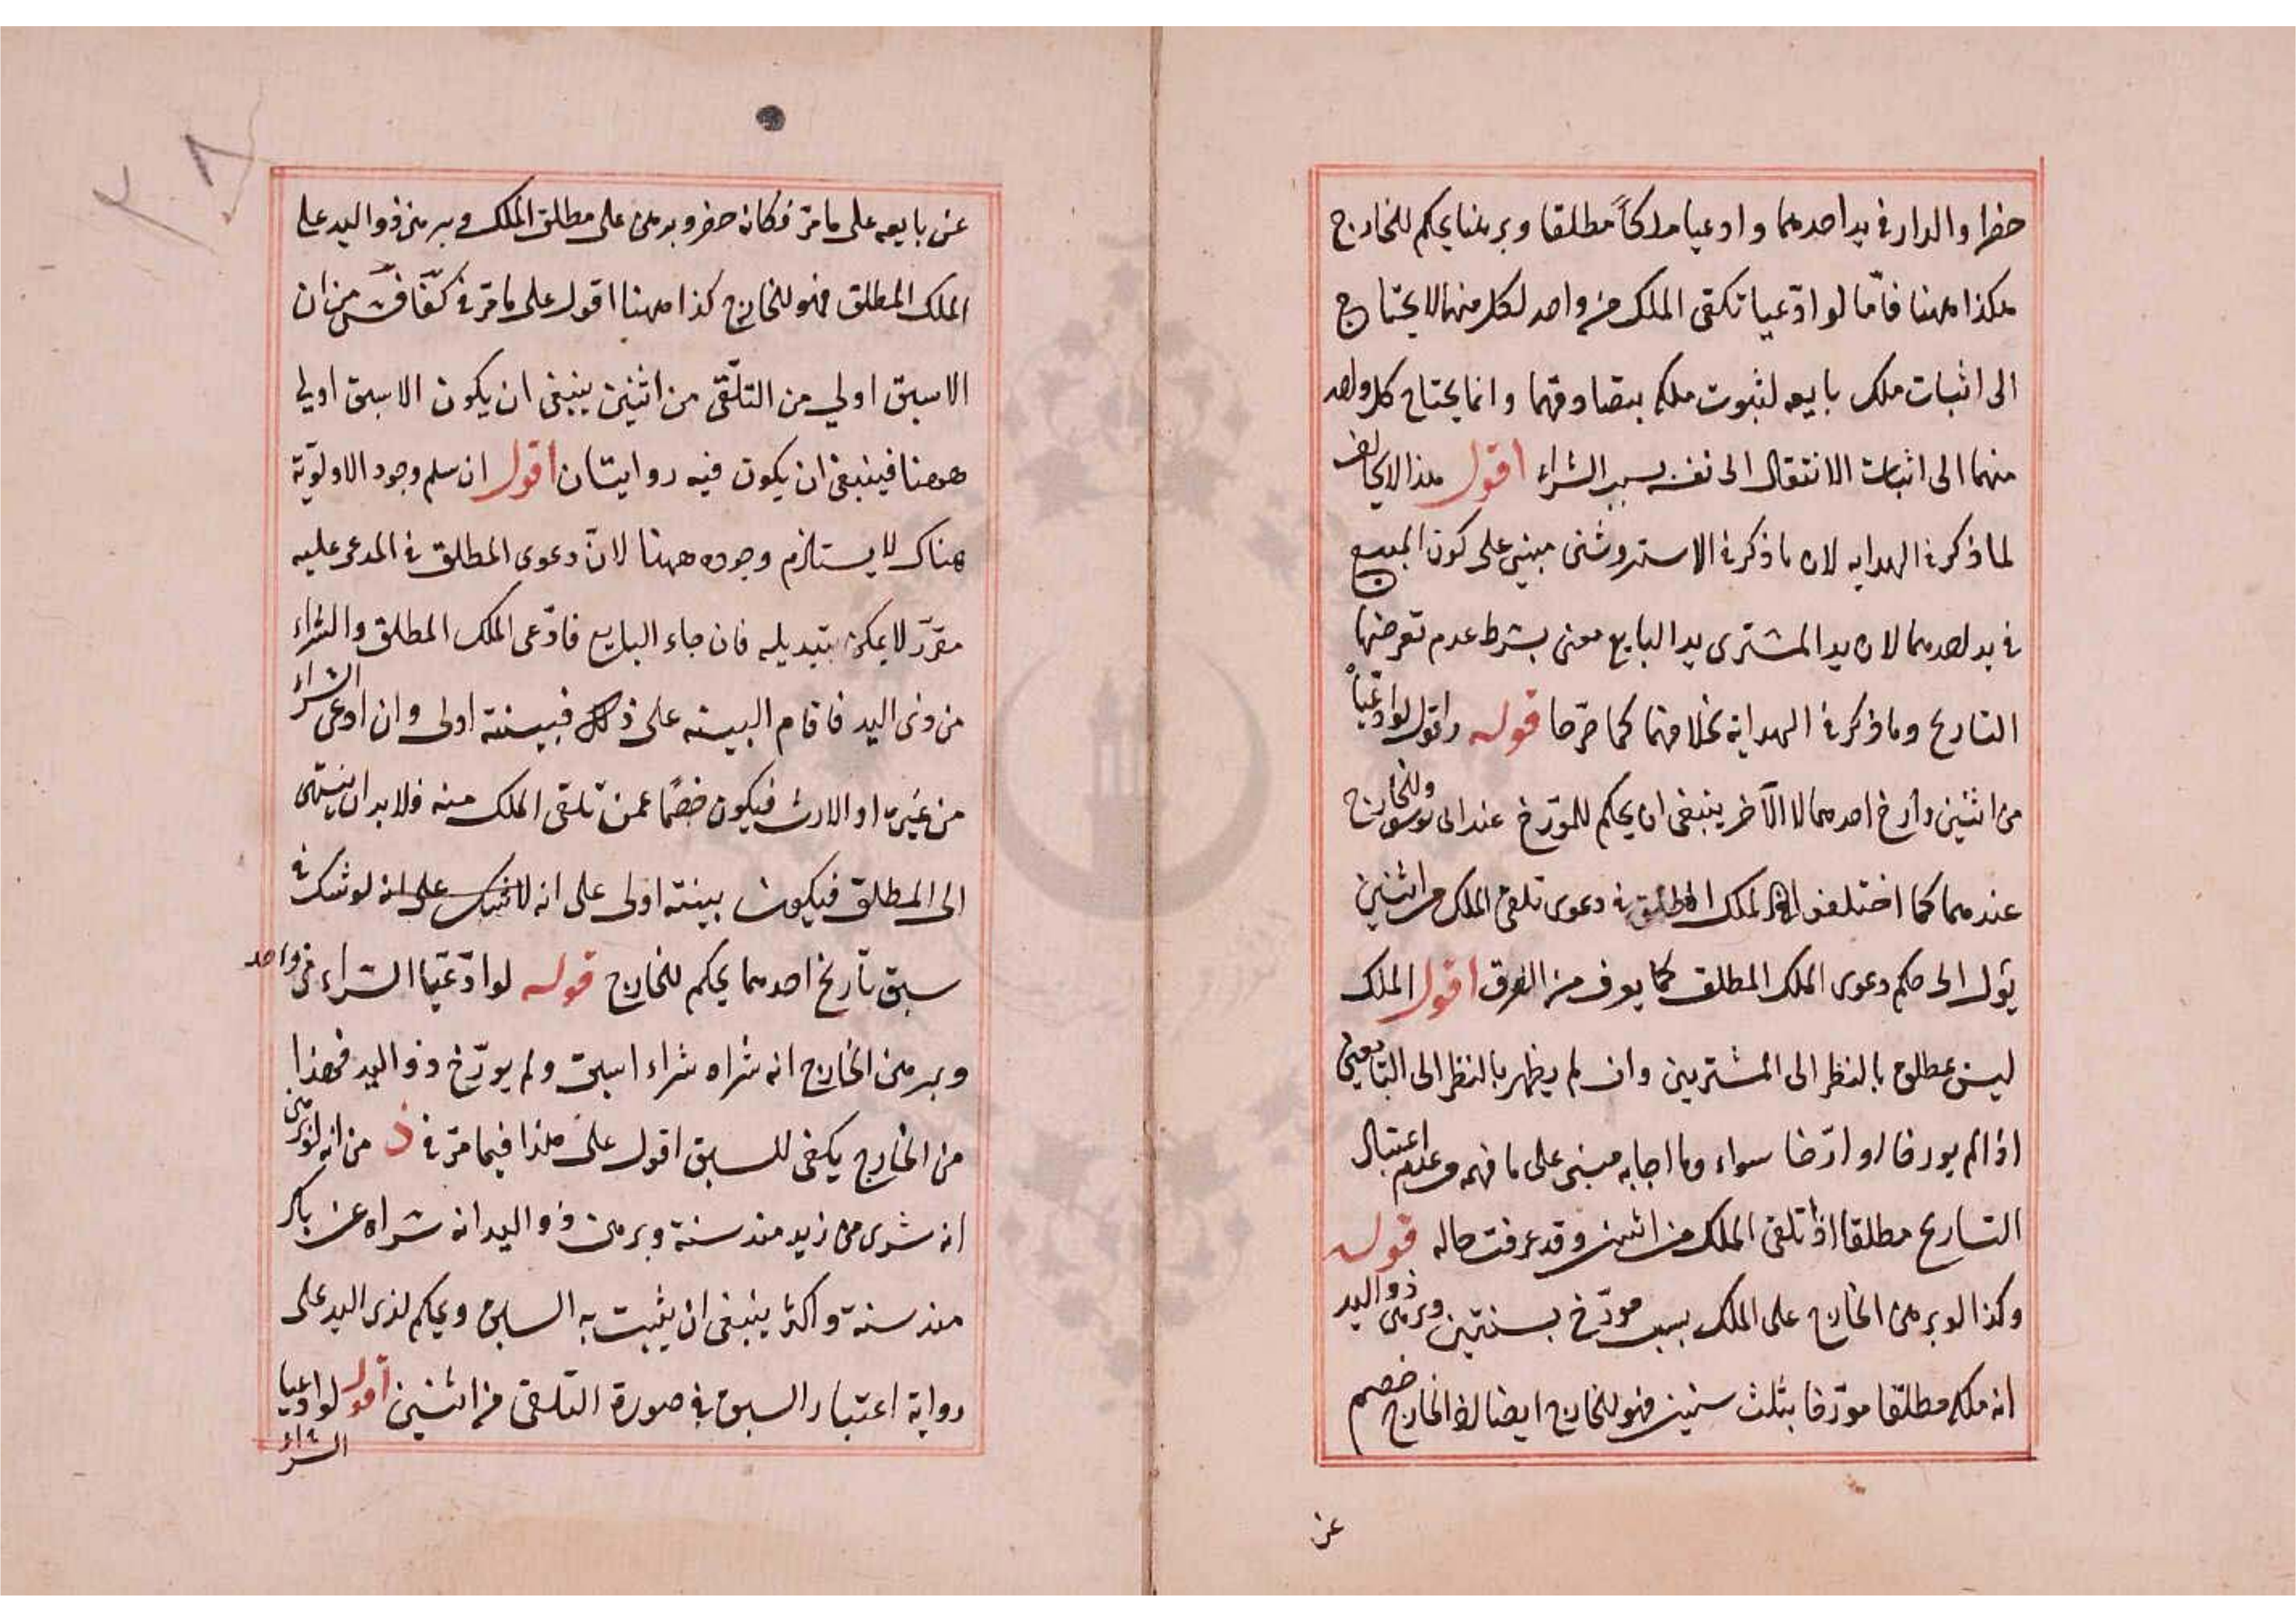 حضرا والدار في يد احدهما وادعيا ملكاً مطلقا وبرهنا يحكم للخارج
هكذا ههنا فامّا لو ادّعيا تلقى الملك من واحد لكل منهما لا يحتاج
الى اثبات ملك بايعه لثبوت ملكه بتصادقهما وانما يحتاج كل واحد
منهما الى اثبات الانتقال الى نفسه بسبب الشراء اقول هذا لا يخالف
لما ذكر في الهدايه لان ما ذكر في الاستروشنى مبنى على كون المبيع
في يد احدهما لان يد المشترى يد البايع معنى بشرط عدم تعرضهما
التاريخ وما ذكر في الهداية بخلافهما كما صرّحا قوله واقول لو ادّعيا
من اثنين وارخ احدهما لا الآخر ينبغى ان يحكم للمؤرّخ عند ابى يوسف وللخارج
عندهما كما اختلفوا في الملك المطلق دعوى تلقى الملك من اثنين
يؤل الى حكم دعوى الملك المطلق كما يعرف من الفرق اقول الملك
ليس بمطلق بالنظر الى المشتريين وان لم يظهر بالنظر الى البايعين
اذا لم يورخا او ارّخا سواء وما اجابه مبنى على ما فهمه وعدم اعتبار
التاريخ مطلقا اذا تلقى الملك من اثنين وقد عرفت حاله قوله
وكذا لو برهن الخارج على الملك بسبب مورّخ بسنتين وبرهن ذو اليد
انه ملكه مطلقا مورّخا بثلث سنين فهو للخارج ايضا لان الخارج خصم
عن
عن بايعه على ما مرّ فكانه حضر وبرهن على مطلق الملك وبرهن ذو اليد على
الملك المطلق فهو للخارج كذا ههنا اقول على ما مرّ في من ان
الاسبق اولى من التلّقى من اثنين ينبغى ان يكون الاسبق اولى
ههنا فينبغى ان يكون فيه روايتان اقول ان سلم وجود الاولويّة
هناك لا يستلزم وجوده ههنا لانّ دعوى المطلق في المدعى عليه
مقرّر لا يمكن تبديله فان جاء البايع فادّعى الملك المطلق والشراء
من ذى اليد فاقام البينه على ذلك فبينته اولى وان ادعى الشراء
من غيره او الارث فيكون خصمًا عمن تلقى الملك منه فلا بد ان ينتهى
الى المطلق فيكون بينته اولى على انه لا شك على انه لو شك في
سبق تأريخ احدهما يحكم للخارج قوله لو ادّعيا الشراء من واحد
وبرهن الخارج انه شراه شراء اسبق ولم يورّخ ذو اليد فهذا
من الخارج يكفى للسبق اقول على هذا فيما مرّ في ذ من انه لو برهن
انه شرى من زيد منذ سنة وبرهن ذو اليد انه شراه عن بكر
منذ سنة واكثر ينبغى ان يثبت به السبق ويحكم لذى اليد على
رواية اعتبار السبق في صورة التلقى من اثنين اقول لو ادعيا
الشراء